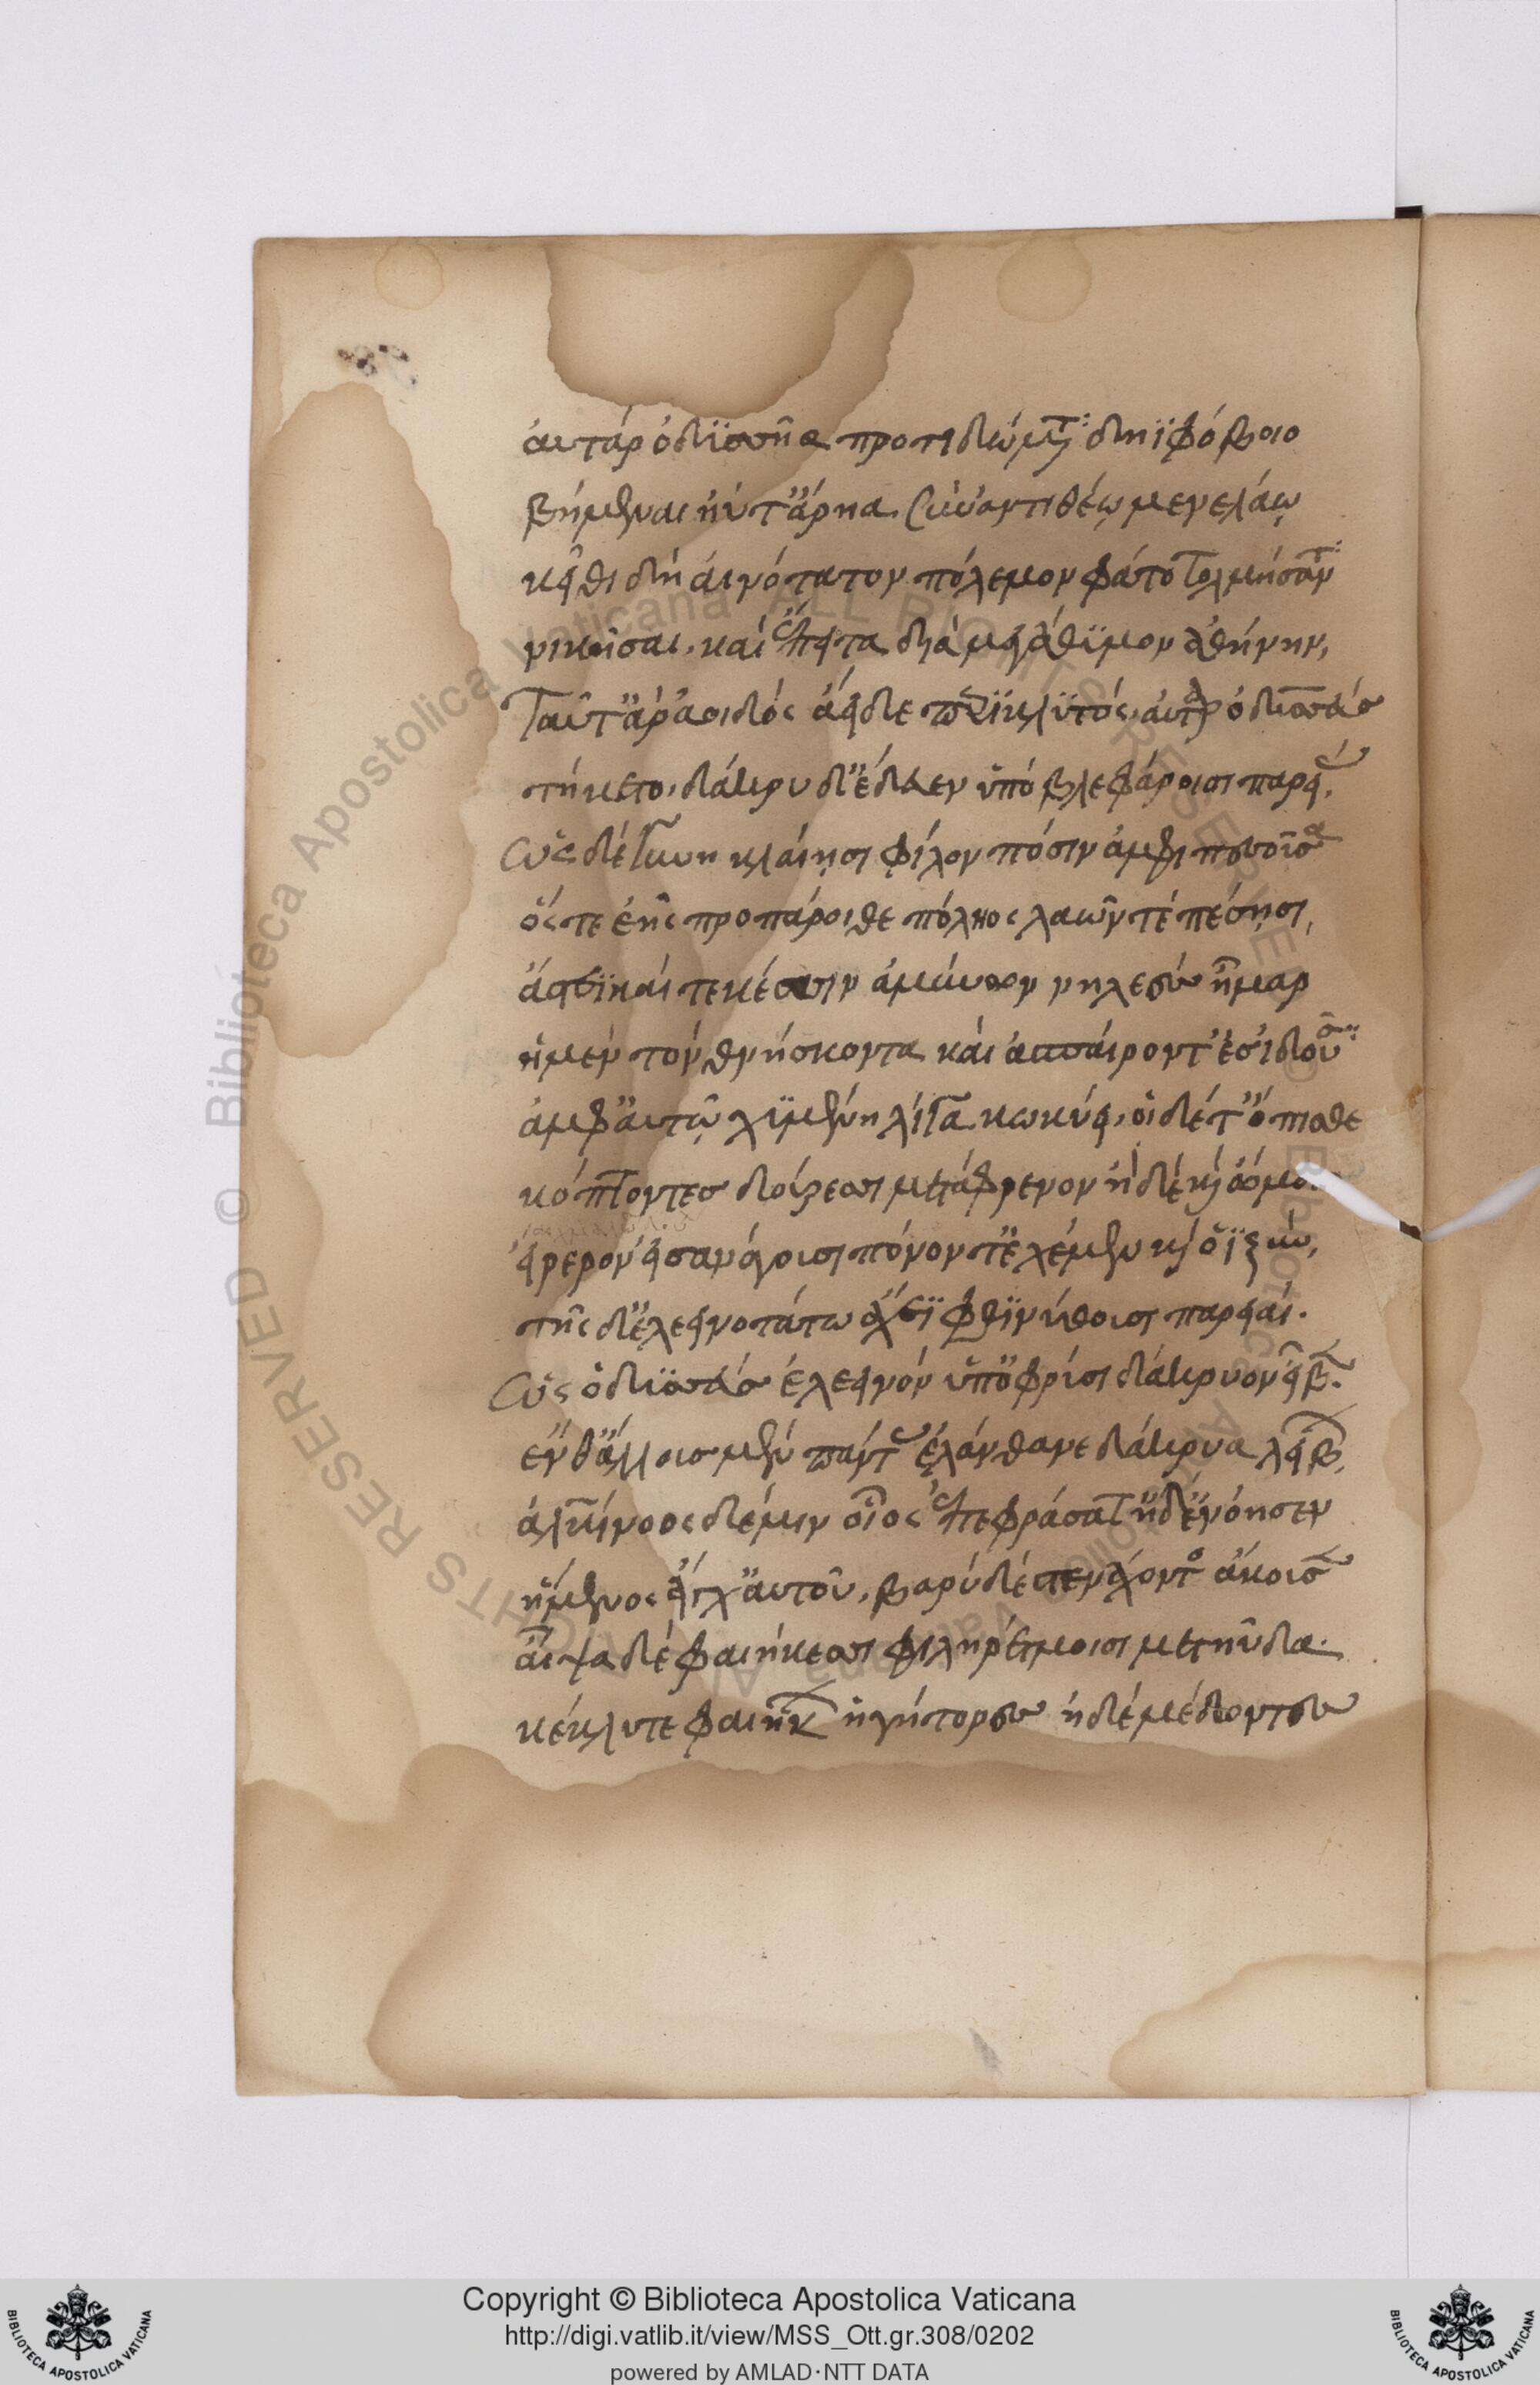 αὐτὰρ ὀδϋσσῆα προτὶ δώματα δηϊφόβοιο
βήμεναι ἠΰτ' ἄρηα. σὺν ἀντιθέῳ μενελάῳ
κεῖθι δὴ αἰνότατον πόλεμον φάτο τολμήσαντα
νικῆσαι, καὶ ἔπειτα διὰ μεγάθϋμον ἀθήνην,
Ταῦτ' ἄρ' ἀοιδὸς ἄειδε περϊκλϋτός, αὐτὰρ ὀδυσσεὺς
τήκετο, δάκρυ δ' ἔδευεν ὑπὸ βλεφάροισι παρειάς,
ὡς δὲ γυνὴ κλαίῃσι φίλον πόσιν ἀμφιπεσοῦσα
ὅς τε ἑῆς προπάροιθε πόληος λαῶν τὲ πέσῃσι,
ἄστεϊ καὶ τεκέεσσιν ἀμύνων νηλεὲς ἦμαρ
ἡ μὲν τὸν θνήσκοντα καὶ ἀσπαίροντ' ἐσιδοῦσα
ἀμφ' αὐτῷ χϋμένη λίγα κωκύει, οἱ δέ τ' ὄπισθε
κόπτοντες δούρεσσι μετάφρενον ἠδὲ καὶ ὤμους
εἴρερον εἰσανάγουσι πόνον τ' ἐχέμεν καὶ ὀϊζύν,
τῆς δ' ἐλεεινοτάτω ἄχεϊ φθϊνύθουσι παρειαί.
ὡς ὀδϋσσεὺς ἐλεεινὸν ὑπ' ὀφρύσι δάκρυον εἶβεν.
ἔνθ' ἄλλους μὲν πάντας ἐλάνθανε δάκρυα λείβων,
ἀλκίνοος δέ μιν οἶος ἐπεφράσατ' ἠδ' ἐνόησεν
ἥμενος ἄγχ' αὐτοῦ, βαρὺ δὲ στενάχοντος ἄκουσεν
αἶψα δὲ φαιήκεσσι φιληρέτμοισι μετηύδα.
κέκλυτε φαιήκων ἡγήτορες ἠδὲ μέδοντες
Copyright © Biblioteca Apostolica Vaticana
http://digi.vatlib.it/view/MSS_Ott.gr.308/0202
powered by AMLAD·NTT DATA